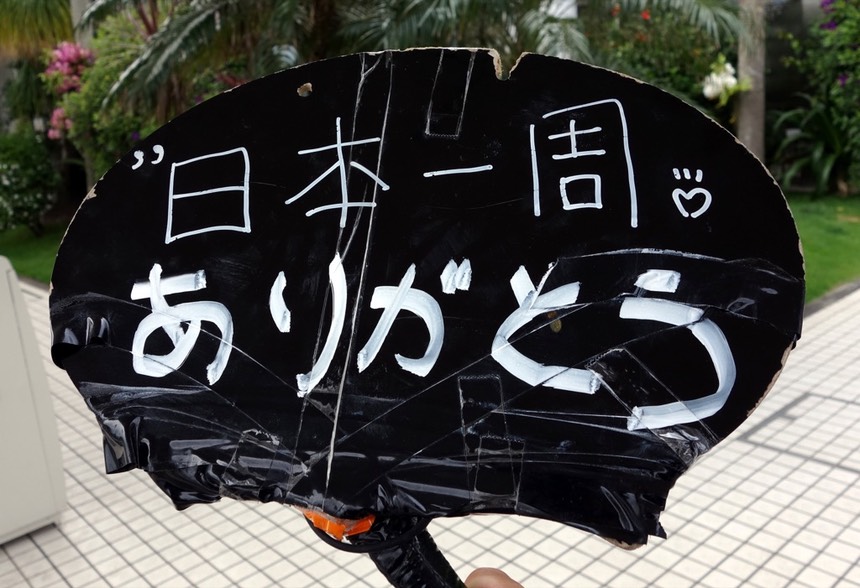 ”日本一周
ありがとう